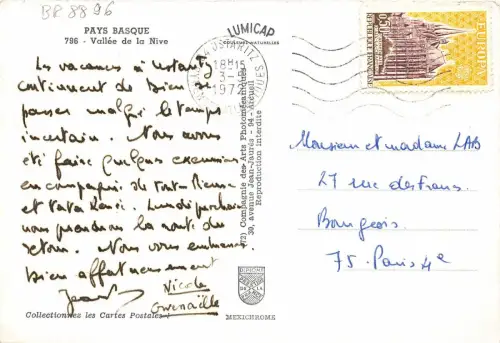 BP 8896
PAYS BASQUE
786 - Vallée de la Nive
LUMICAP
COULEURS NATURELLES
USTARITZ
18H15
1975
EUROPA
Les vacances à ustaritz
continuent de bien se
passer malgré le temps
incertain. Nous avons
été faire quelques excursions
en compagnie de
et tata. Lundi prochain
nous prendrons la route du
retour. Nous vous embrassons
bien affectueusement
Jean
Nicole
Gwenaëlle
Collectionnez les Cartes Postales !
(72) Compagnie des Arts Photomécaniques
39, avenue Jean-Jaurès - 94 - Arcueil
Reproduction interdite
MEXICHROME
Monsieur et madame LAB
27 rue des Francs
Bourgeois.
75. Paris 4e